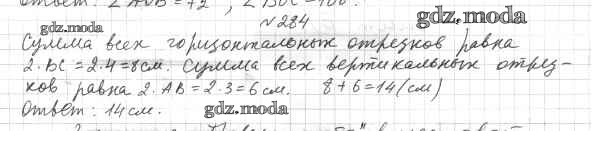 Ответ: ∠AOB = 72°, ∠BOC = 108°.
gdz.moda
№ 284
gdz.moda
Сумма всех горизонтальных отрезков равна
2·BC = 2·4 = 8см. Сумма всех вертикальных отрез-
ков равна 2·AB = 2·3 = 6 см. 8 + 6 = 14 (см)
Ответ: 14 см.
gdz.moda